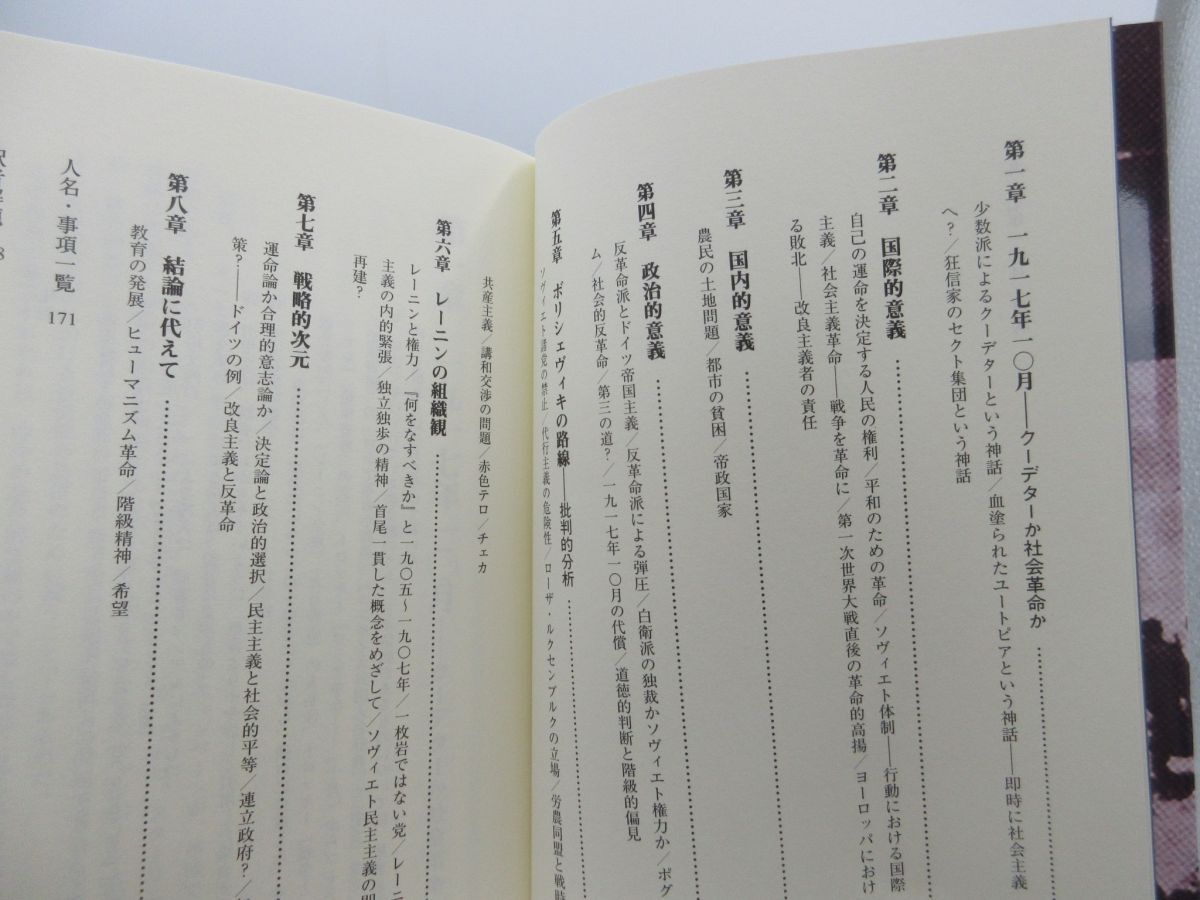 第一章　一九一七年一〇月――クーデターか社会革命か
少数派によるクーデターという神話/血塗られたユートピアという神話――即時に社会主義
へ?/狂信家のセクト集団という神話
第二章　国際的意義
自己の運命を決定する人民の権利/平和のための革命/ソヴィエト体制――行動における国際
主義/社会主義革命――戦争を革命に/第一次世界大戦直後の革命的高揚/ヨーロッパにおけ
る敗北――改良主義者の責任
第三章　国内的意義
農民の土地問題/都市の貧困/帝政国家
第四章　政治的意義
反革命派とドイツ帝国主義/反革命派による弾圧/白衛派の独裁かソヴィエト権力か/ポグ
ム/社会的反革命/第三の道?/一九一七年一〇月の代償/道徳的判断と階級的偏見
第五章　ボリシェヴィキの路線――批判的分析
ソヴィエト諸党の禁止/代行主義の危険性/ローザ・ルクセンブルクの立場/労農同盟と戦時
共産主義/講和交渉の問題/赤色テロ/チェカ
第六章　レーニンの組織観
レーニンと権力/『何をなすべきか』と一九〇五〜一九〇七年/一枚岩ではない党/レーニ
主義の内的緊張/独立独歩の精神/首尾一貫した概念をめざして/ソヴィエト民主主義の
再建?
第七章　戦略的次元
運命論か合理的意志論か/決定論と政治的選択/民主主義と社会的平等/連立政府?/
策?――ドイツの例/改良主義と反革命
第八章　結論に代えて
教育の発展/ヒューマニズム革命/階級精神/希望
人名・事項一覧　171